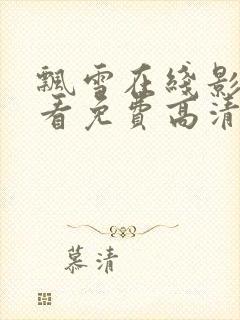 飘雪在线影
看免费高清
慕清